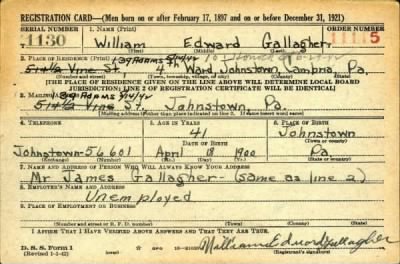 REGISTRATION CARD—(Men born on or after February 17, 1897 and on or before December 31, 1921)
SERIAL NUMBER 1. NAME (Print) ORDER NUMBER
1130 William Edward Gallagher 11115
139 Adams 5/14/42
2. PLACE OF RESIDENCE (Print)
514½ Vine St, 4th Ward Johnstown, Cambria, Pa.
(Number and street) (Town, township, village, or city) (County) (State)
[THE PLACE OF RESIDENCE GIVEN ON THE LINE ABOVE WILL DETERMINE LOCAL BOARD
JURISDICTION; LINE 2 OF REGISTRATION CERTIFICATE WILL BE IDENTICAL]
3. MAILING 139 Adams 5/14/42
514½ Vine St. Johnstown, Pa.
[Mailing address if other than place indicated on line 2. If same insert word same]
4. TELEPHONE 5. AGE IN YEARS 6. PLACE OF BIRTH
41 Johnstown
DATE OF BIRTH (Town or county)
Johnstown-56601 April 18 1900 Pa.
(Exchange) (Number) (Mo.) (Day) (Yr.) (State or country)
7. NAME AND ADDRESS OF PERSON WHO WILL ALWAYS KNOW YOUR ADDRESS
Mr James Gallagher-(same as line 2)
8. EMPLOYER'S NAME AND ADDRESS
Unemployed
9. PLACE OF EMPLOYMENT OR BUSINESS
(Number and street or R. F. D. number) (Town) (County) (State)
I AFFIRM THAT I HAVE VERIFIED ABOVE ANSWERS AND THAT THEY ARE TRUE.
D. S. S. Form 1
(Revised 1-1-42) William Edward Gallagher
(Registrant's signature)